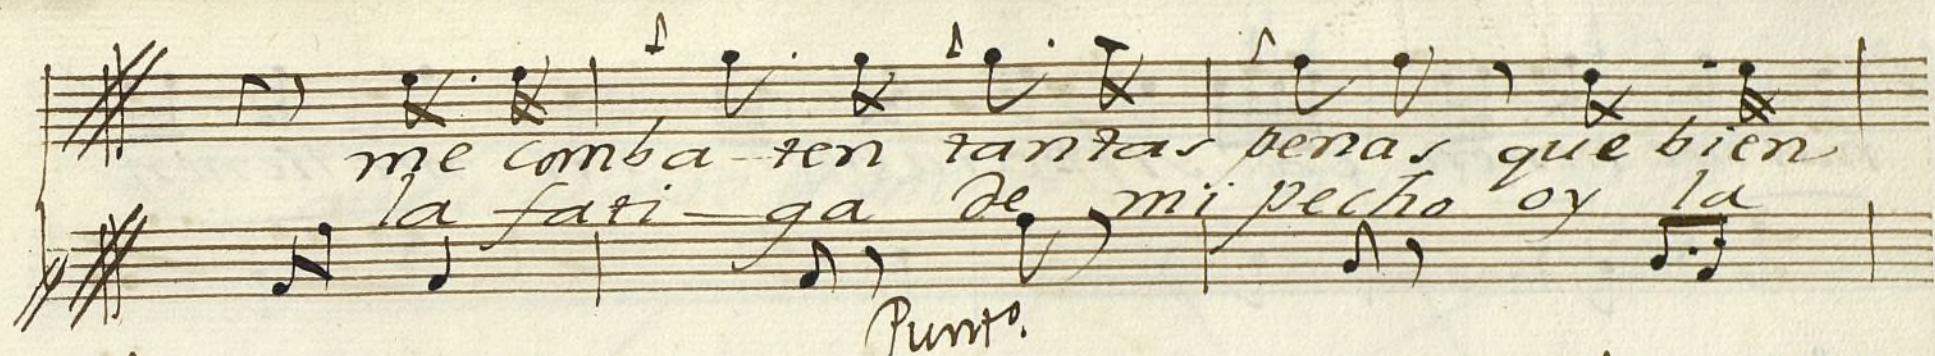 me comba-ten tantas penas que bien
la fati-ga de mi pecho oy la
Punto.